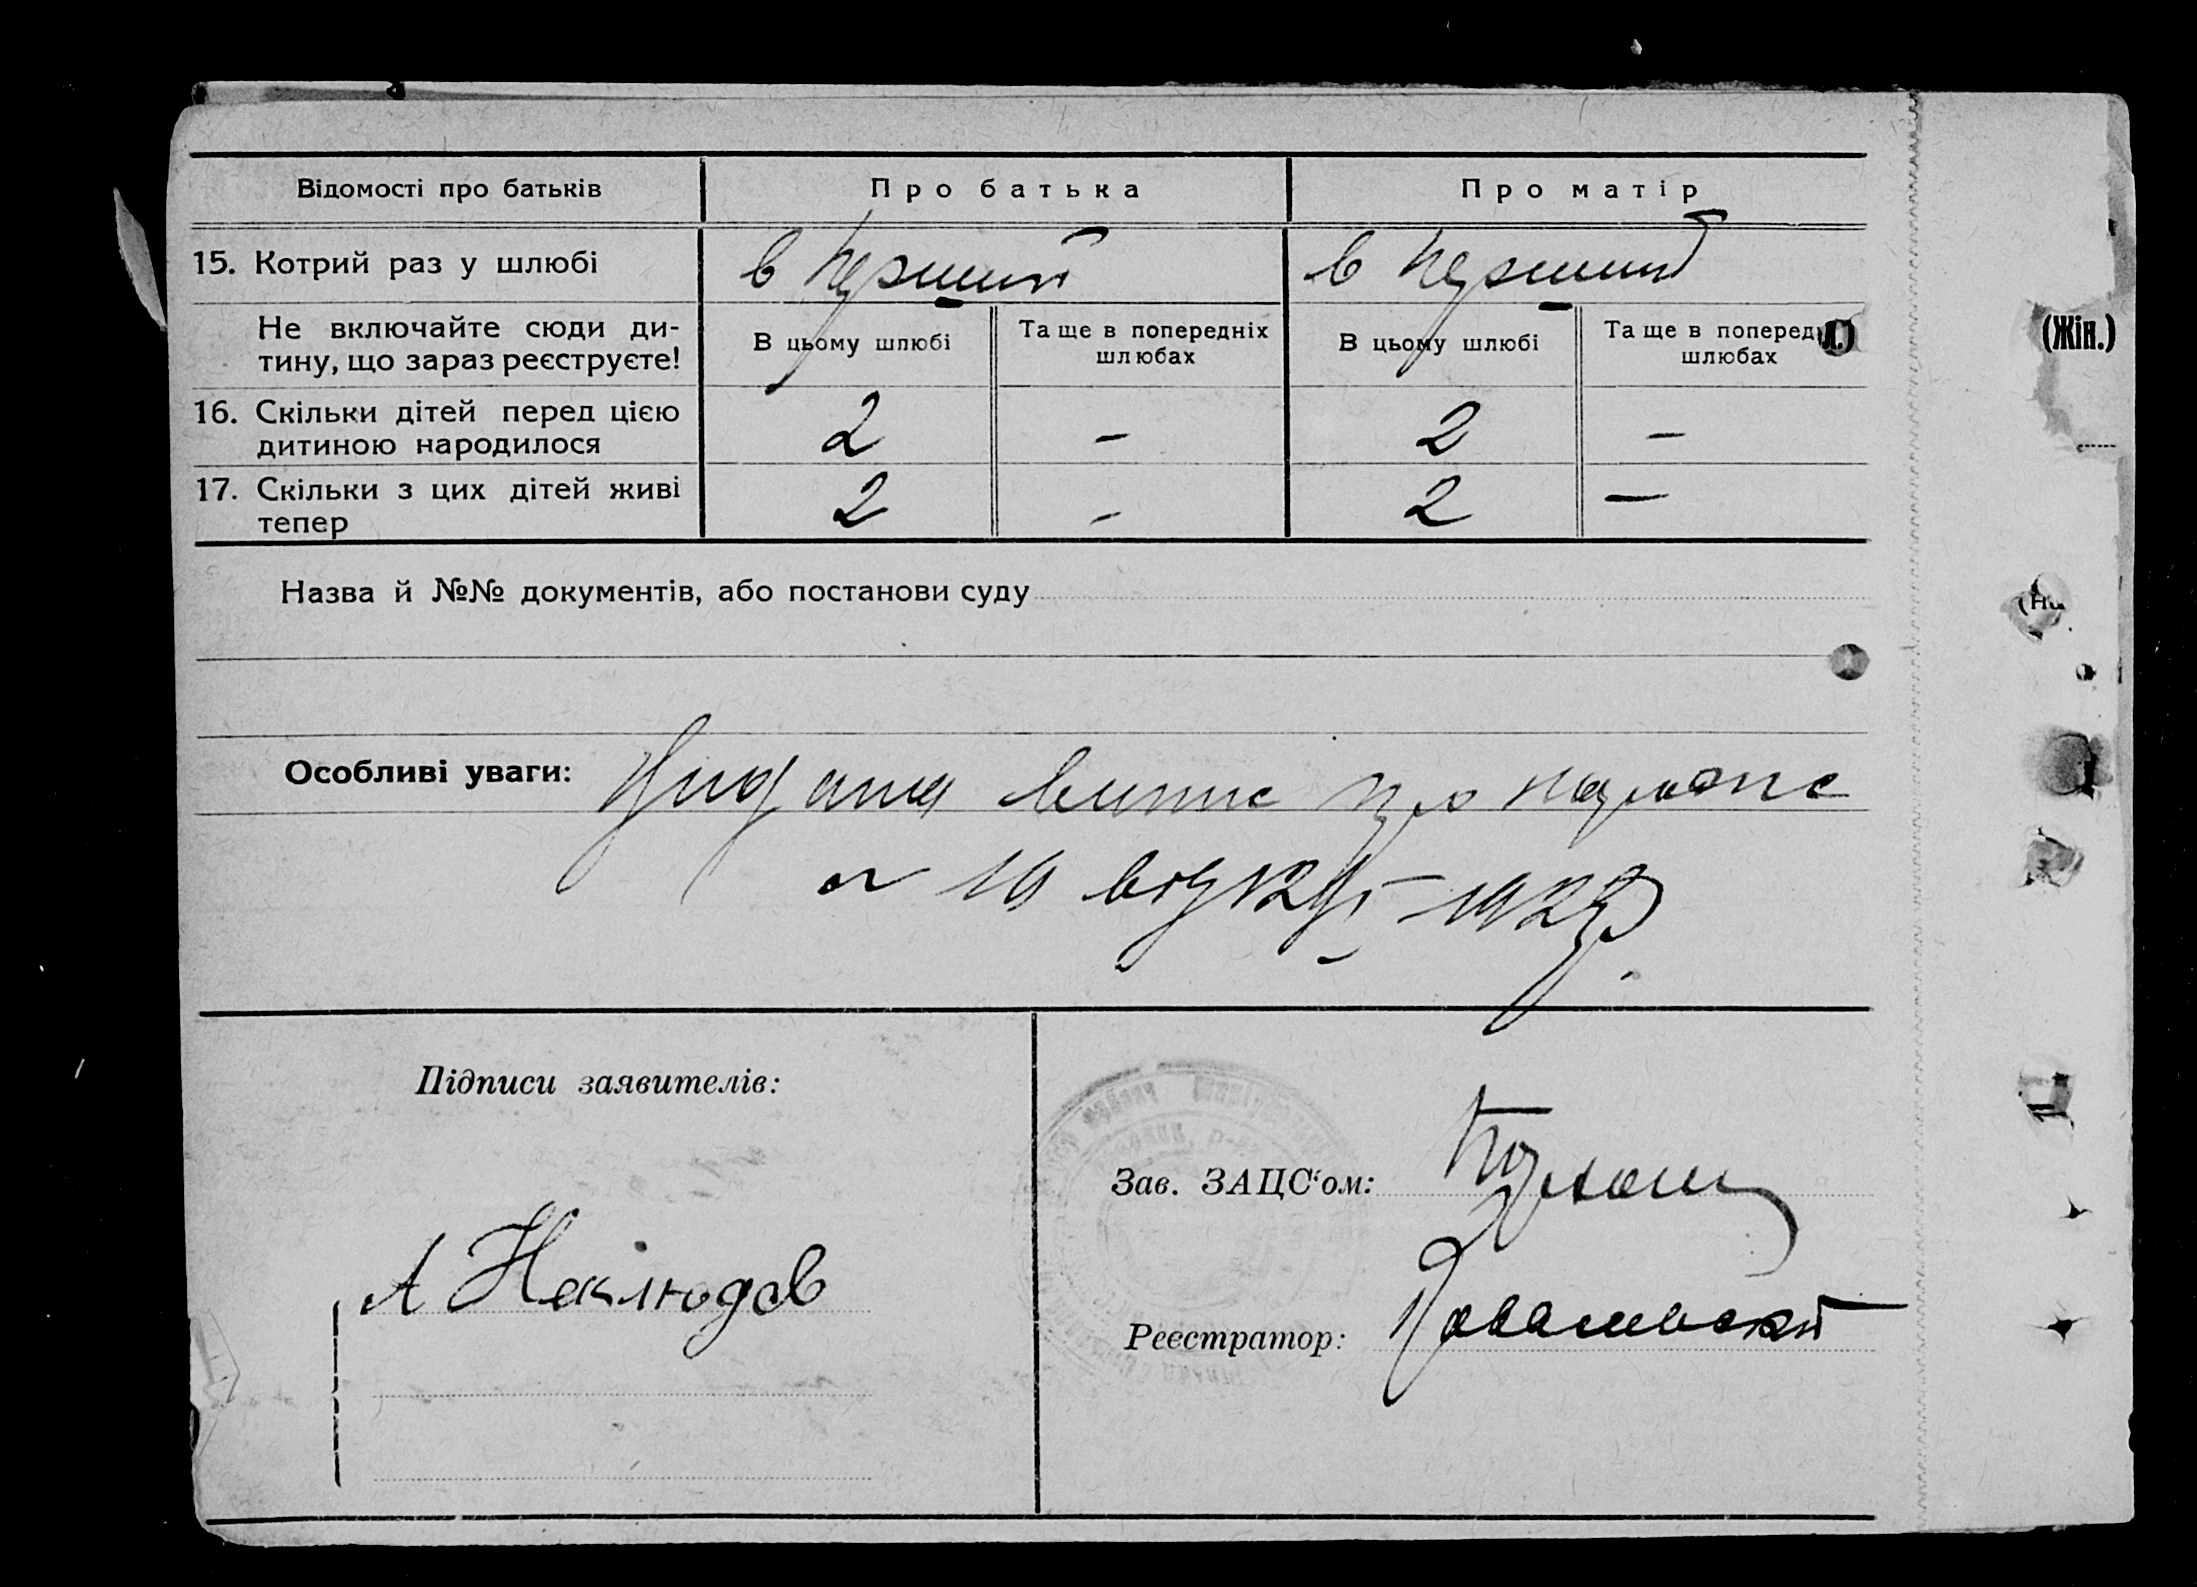 Відомості про батьків
Про батька
Про матір
15. Котрий раз у шлюбі
в перший
в перший
Не включайте сюди ди-
тину, що зараз реєструєте!
В цьому шлюбі
Та ще в попередніх
шлюбах
В цьому шлюбі
Та ще в поперед
шлюбах
(Жін.)
16. Скільки дітей перед цією
дитиною народилося
2
–
2
–
17. Скільки з цих дітей живі
тепер
2
–
2
–
Назва й №№ документів, або постанови суду
Особливі уваги:
Видана випис про народж
10 від
Підписи заявителів:
Зав. ЗАЦС'ом:
А Неклюдов
Реєстратор:
Ковалевский